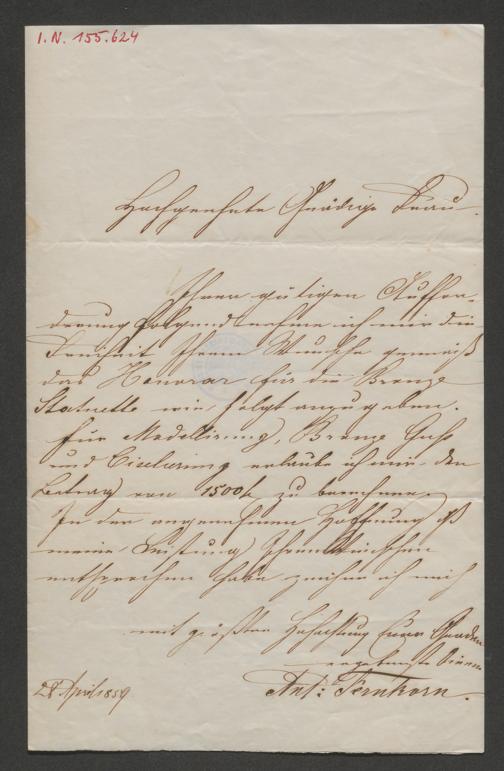 I.N. 155.624
Hochgeehrte Gnädige Frau.
Ihrer gütigen Auffor-
derung folgend nehme ich mir die
Freiheit Ihrem Wunsche gemäß
das Honorar für die Bronze
Statuette wie folgt anzugeben.
Für Modellirung, Bronze Guß
und Ciselirung erlaube ich mir den
Betrag von 1500 f. zu berechnen.
In der angenehmen Hoffnung ß
meine Leistung Ihren Wünschen
entsprochen habe zeichne ich mich
mit größter Hochachtung Euer Gnaden
ergebenster Diener
28 April 1859
Ant: Fernkorn.